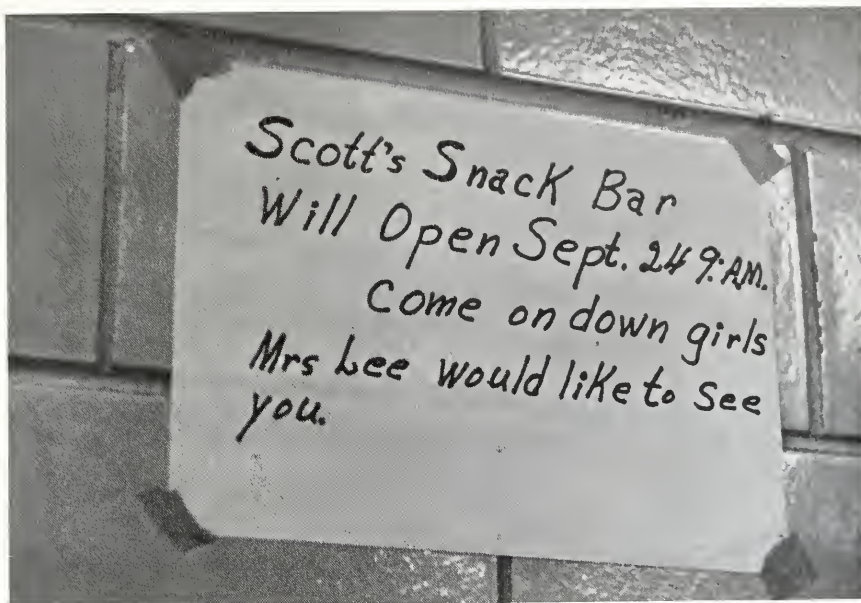 Scott's Snack Bar
Will Open Sept. 24 9:AM.
Come on down girls
Mrs Lee would like to see
you.